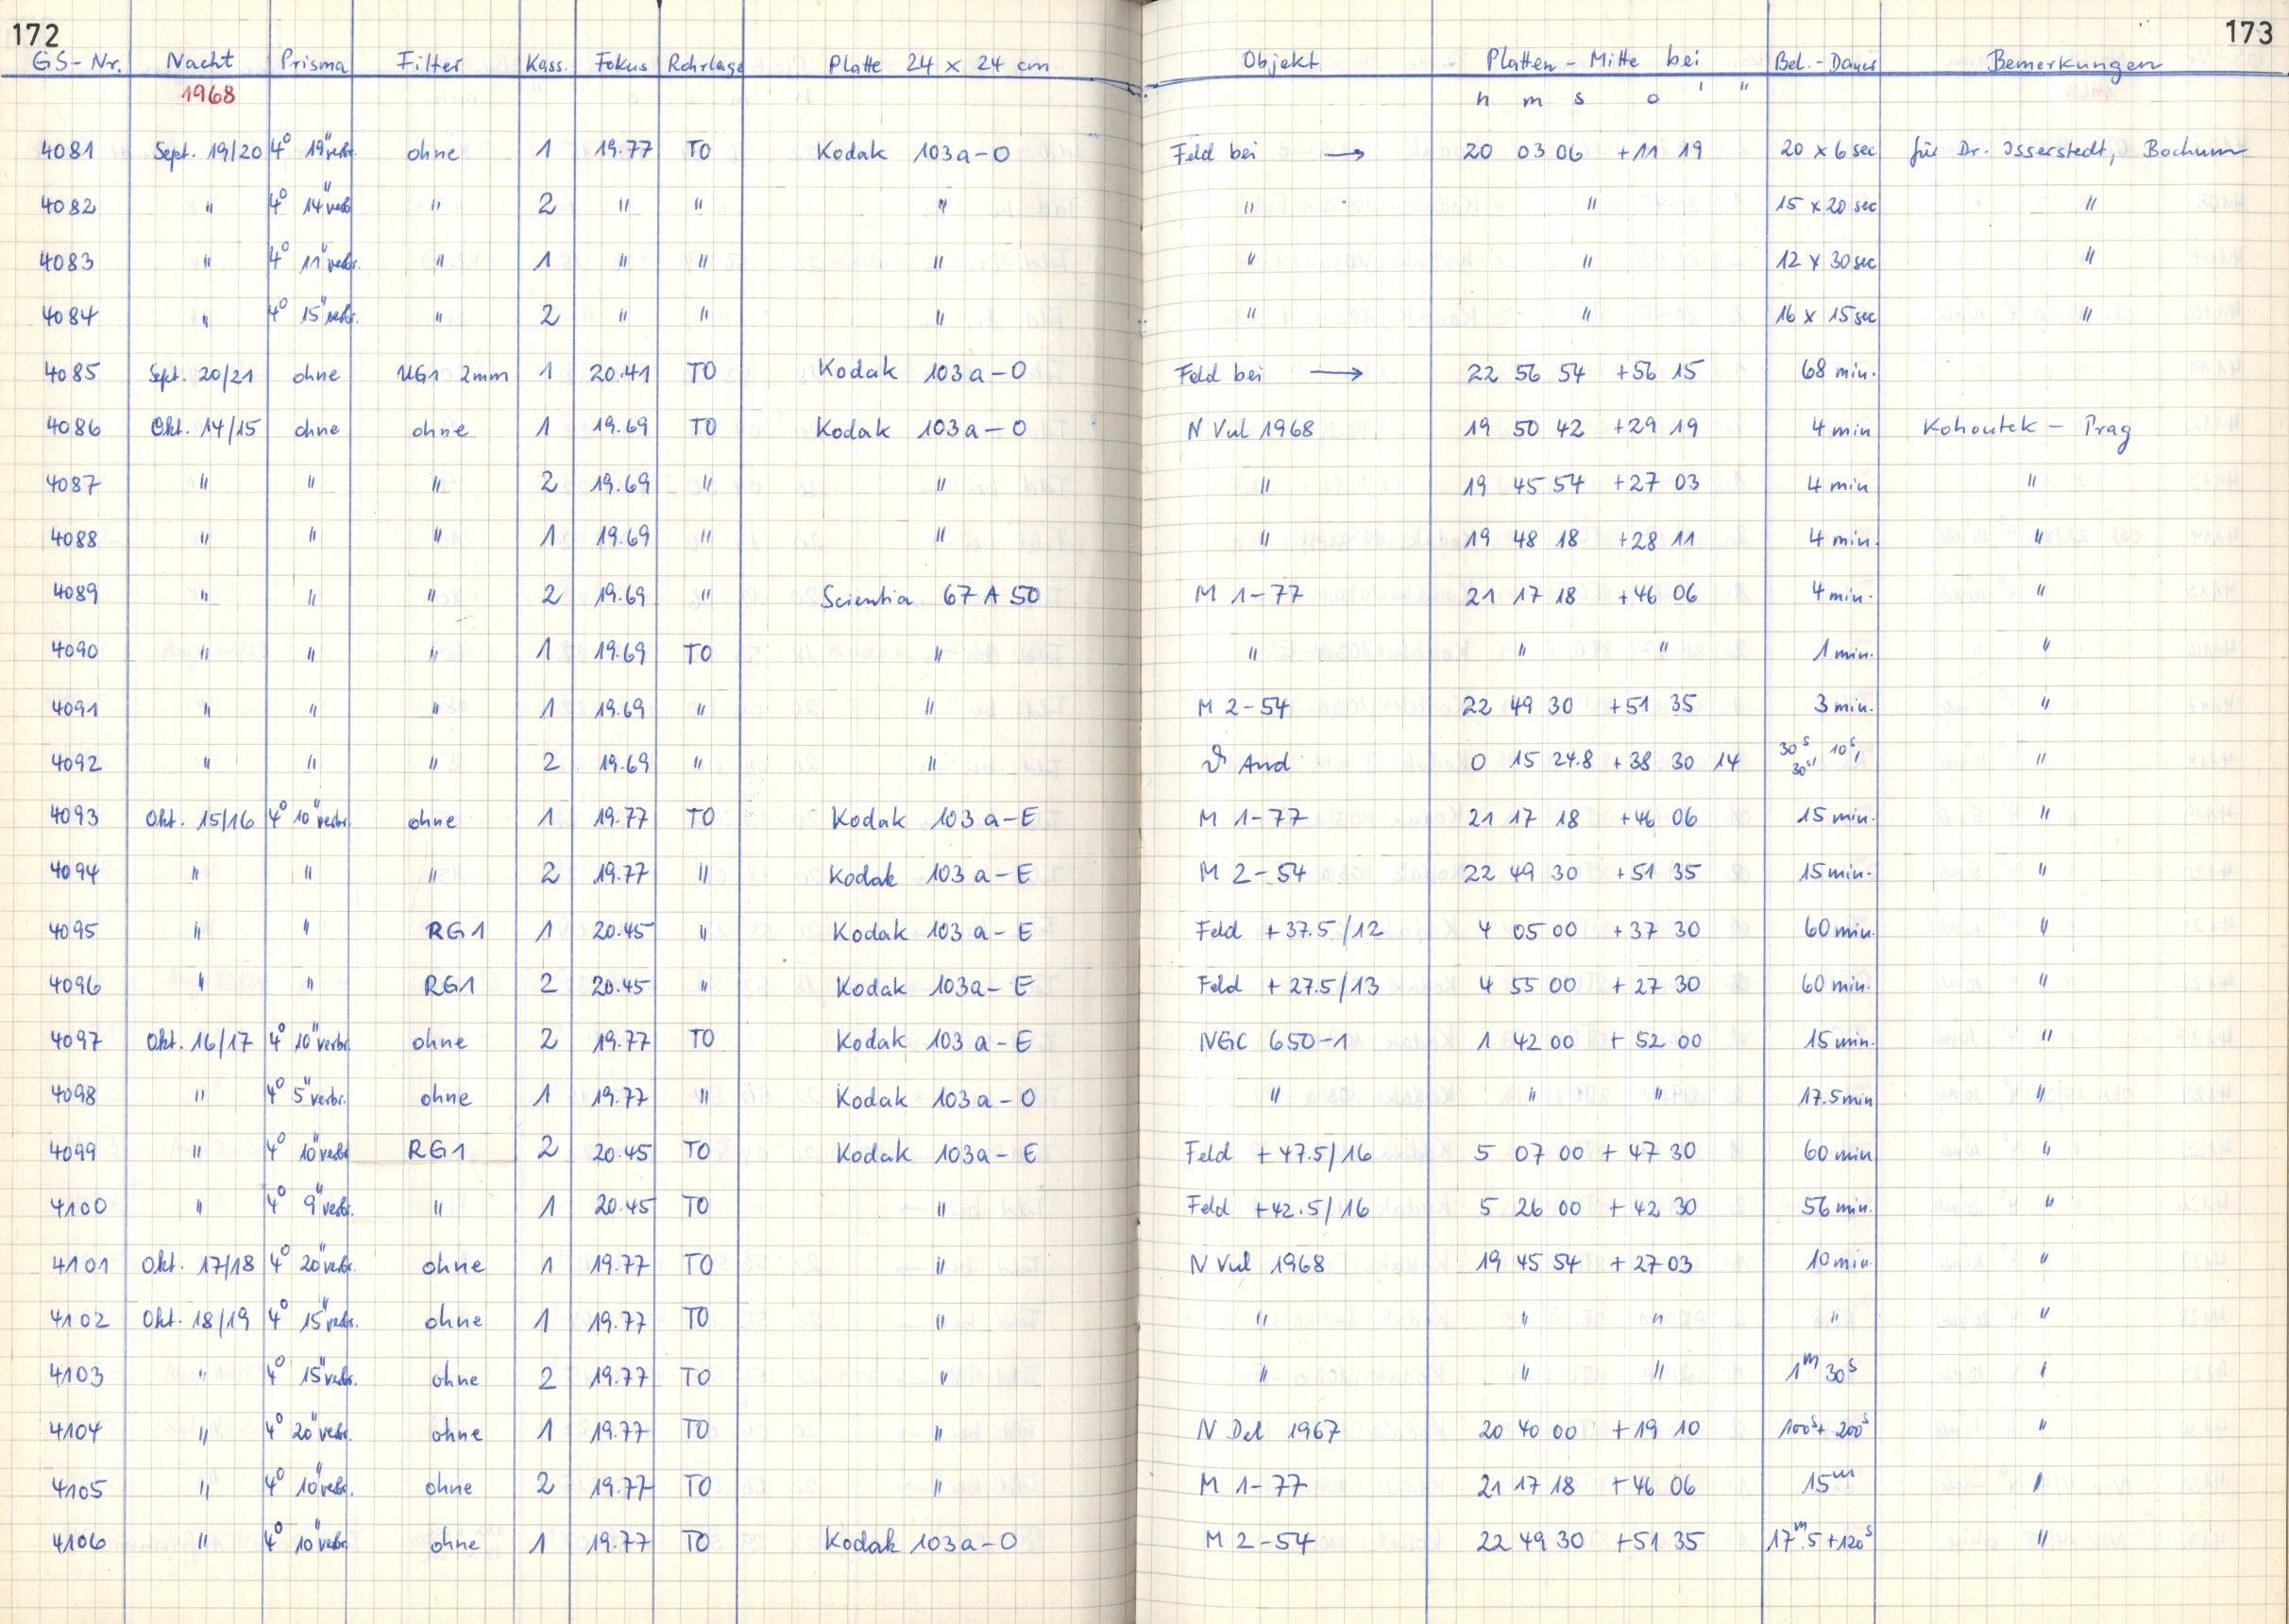 172
173
GS-Nr. Nacht Prisma Filter Kass. Fokus Rohrlage Platte 24 x 24 cm Objekt Platten-Mitte bei Bel.-Dauer Bemerkungen
1968 h m s o ' "
4081 Sept. 19/20 4° 19" verbr. ohne 1 19.77 TO Kodak 103a-O Feld bei → 20 03 06 +11 19 20 x 6 sec für Dr. Isserstedt, Bochum
4082 " 4° 14" verb " 2 " " " " " 15 x 20 sec "
4083 " 4° 11" verbr. " 1 " " " " " 12 x 30 sec "
4084 " 4° 15" verbr. " 2 " " " " " 16 x 15 sec "
4085 Sept. 20/21 ohne UG1 2mm 1 20.41 TO Kodak 103a-O Feld bei → 22 56 54 +56 15 68 min.
4086 Okt. 14/15 ohne ohne 1 19.69 TO Kodak 103a-O N Vul 1968 19 50 42 +29 19 4 min Kohoutek - Prag
4087 " " " 2 19.69 " " " 19 45 54 +27 03 4 min "
4088 " " " 1 19.69 " " " 19 48 18 +28 11 4 min. "
4089 " " " 2 19.69 " Scientia 67 A 50 M 1-77 21 17 18 +46 06 4 min. "
4090 " " " 1 19.69 TO " " " " 1 min. "
4091 " " " 1 19.69 " " M 2-54 22 49 30 +51 35 3 min. "
4092 " " " 2 19.69 " " ϑ And 0 15 24.8 +38 30 14 30s, 10s, 30s "
4093 Okt. 15/16 4° 10" verbr. ohne 1 19.77 TO Kodak 103a-E M 1-77 21 17 18 +46 06 15 min. "
4094 " " " 2 19.77 " Kodak 103a-E M 2-54 22 49 30 +51 35 15 min. "
4095 " " RG1 1 20.45 " Kodak 103a-E Feld +37.5/12 4 05 00 +37 30 60 min. "
4096 " " RG1 2 20.45 " Kodak 103a-E Feld +27.5/13 4 55 00 +27 30 60 min. "
4097 Okt. 16/17 4° 10" verbr. ohne 2 19.77 TO Kodak 103a-E NGC 650-1 1 42 00 +52 00 15 min. "
4098 " 4° 5" verbr. ohne 1 19.77 " Kodak 103a-O " " " 17.5 min "
4099 " 4° 10" verbr RG1 2 20.45 TO Kodak 103a-E Feld +47.5/16 5 07 00 +47 30 60 min "
4100 " 4° 9" verbr. " 1 20.45 TO " Feld +42.5/16 5 26 00 +42 30 56 min. "
4101 Okt. 17/18 4° 20" verbr. ohne 1 19.77 TO " N Vul 1968 19 45 54 +27 03 10 min. "
4102 Okt. 18/19 4° 15" verbr. ohne 1 19.77 TO " " " " " "
4103 " 4° 15" verbr. ohne 2 19.77 TO " " " " 1m 30s "
4104 " 4° 20" verbr. ohne 1 19.77 TO " N Del 1967 20 40 00 +19 10 100s + 200s "
4105 " 4° 10" verbr. ohne 2 19.77 TO " M 1-77 21 17 18 +46 06 15m "
4106 " 4° 10" verbr ohne 1 19.77 TO Kodak 103a-O M 2-54 22 49 30 +51 35 17m.5 + 120s "